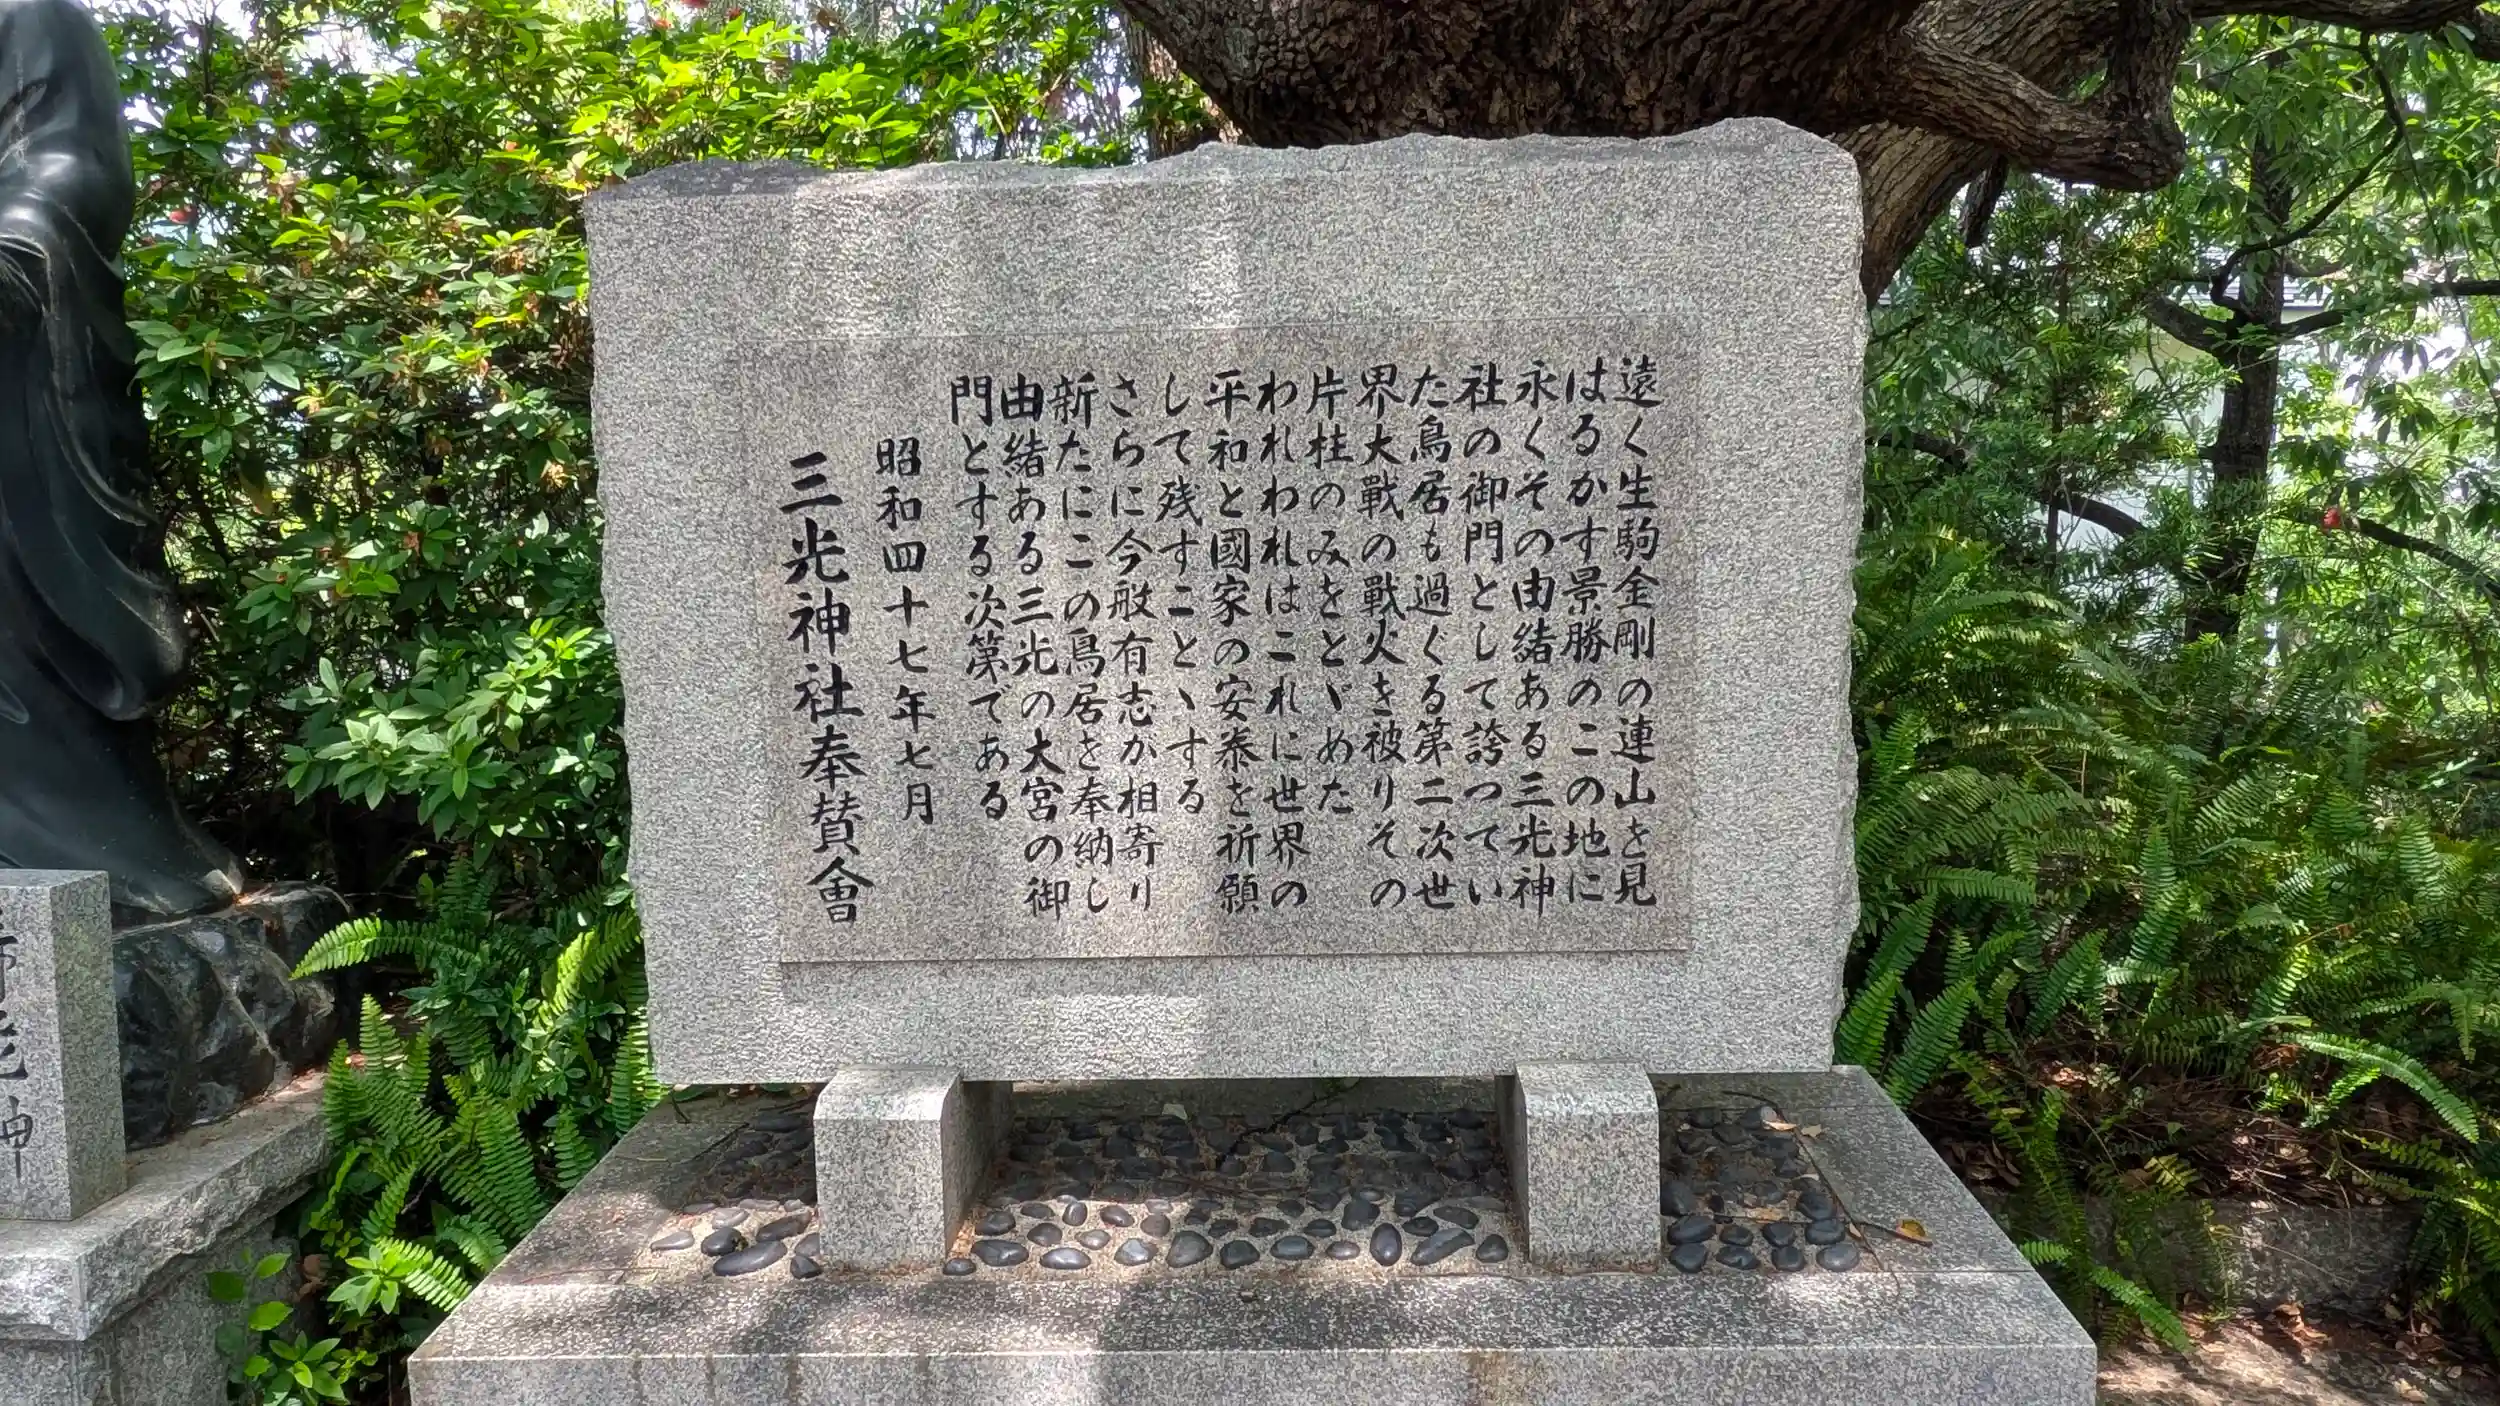 遠く生駒金剛の連山を見
はるかす景勝のこの地に
永くその由緒ある三光神
社の御門として誇つてい
た鳥居も過ぐる第二次世
界大戰の戰火を被りその
片柱のみをとゞめた
われわれはこれに世界の
平和と國家の安泰を祈願
して残すことゝする
さらに今般有志が相寄り
新たにこの鳥居を奉納し
由緒ある三光の大宮の御
門とする次第である
昭和四十七年七月
三光神社奉賛會